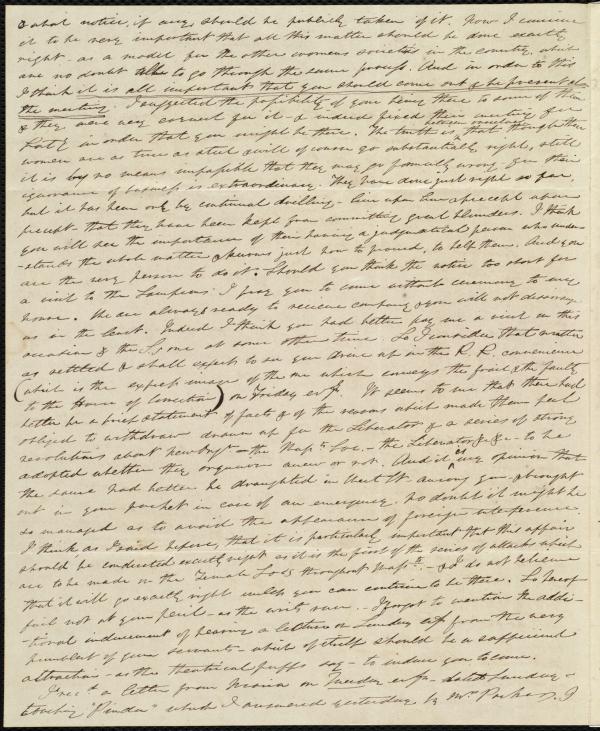 & what notice, if any, should be publicly taken of it. Now I conceive
it to be very important that all this matter should be done exactly
right - as a model for the other womens societies in the country, which
are no doubt to go through the same process. And in order to this
I think it is all important that you should come out & be present at
the meeting. I suggested the possibility of your being there to some of them
& they were very earnest for it - & indeed fixed their meeting for
in order that you might be there. The truth is that though these
women are as true as steel & will of course go substantially right, still
it is by no means impossible that they may go formally wrong, for their
ignorance of business is extraordinary. They have done just right so far,
but it has been only by continual drilling - line upon line & precept upon
precept - that they have been kept from committing great blunders. I think
you will see the importance of their having a judgmatical person who under-
-stands the whole matter & knows just how to proceed, to help them. And you
are the very person to do it. Should you think the notice too short for
a visit to the I pray you to come without ceremony to my
house. We are always ready to receive company & you will not discommode
us in the least. Indeed I think you had better pay me a visit on this
occasion & the some at some other time. So I consider that matter
as settled & shall expect to see you drive up in the R. R. convenience
(which is the express image of the one which conveys the frail & the faulty
to the House of Correction) on Friday evg. It seems to me that there had
better be a brief statement of facts & of the reasons which made them feel
obliged to withdraw drawn up for the Liberator & a series of strong
resolutions about - the Massts Soc. - the Liberator &c &c - to be
adopted whether they organize anew or not. And it is my opinion that
the same had better be draughted in West St. among you & brought
out in your pocket in case of an emergency. No doubt it might be
so managed as to avoid the appearance of foreign interference.
I think as I said before, that it is particularly important that this affair
should be conducted exactly right as it is the first of the series of attacks which
are to be made on the Female Socs throughout Massts. - & I do not believe
that it will go exactly right unless you can contrive to be there. So hereof
fail not at your peril - as the writs run. I forgot to mention the addi-
-tional inducement of hearing a lecture on Sunday evg from the very
humblest of your servants - which of itself should be a sufficient
attraction - as the theatrical puffs say - to induce you to come.
I recd a letter from Maria on Tuesday evg - dated Sunday -
touching "Pinda" which I answered yesterday by Mr. Parker. I